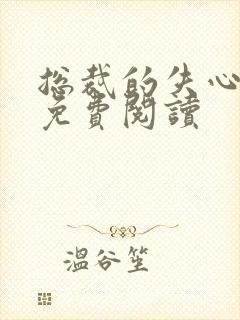 总裁的失心
免費閱讀
温谷笙